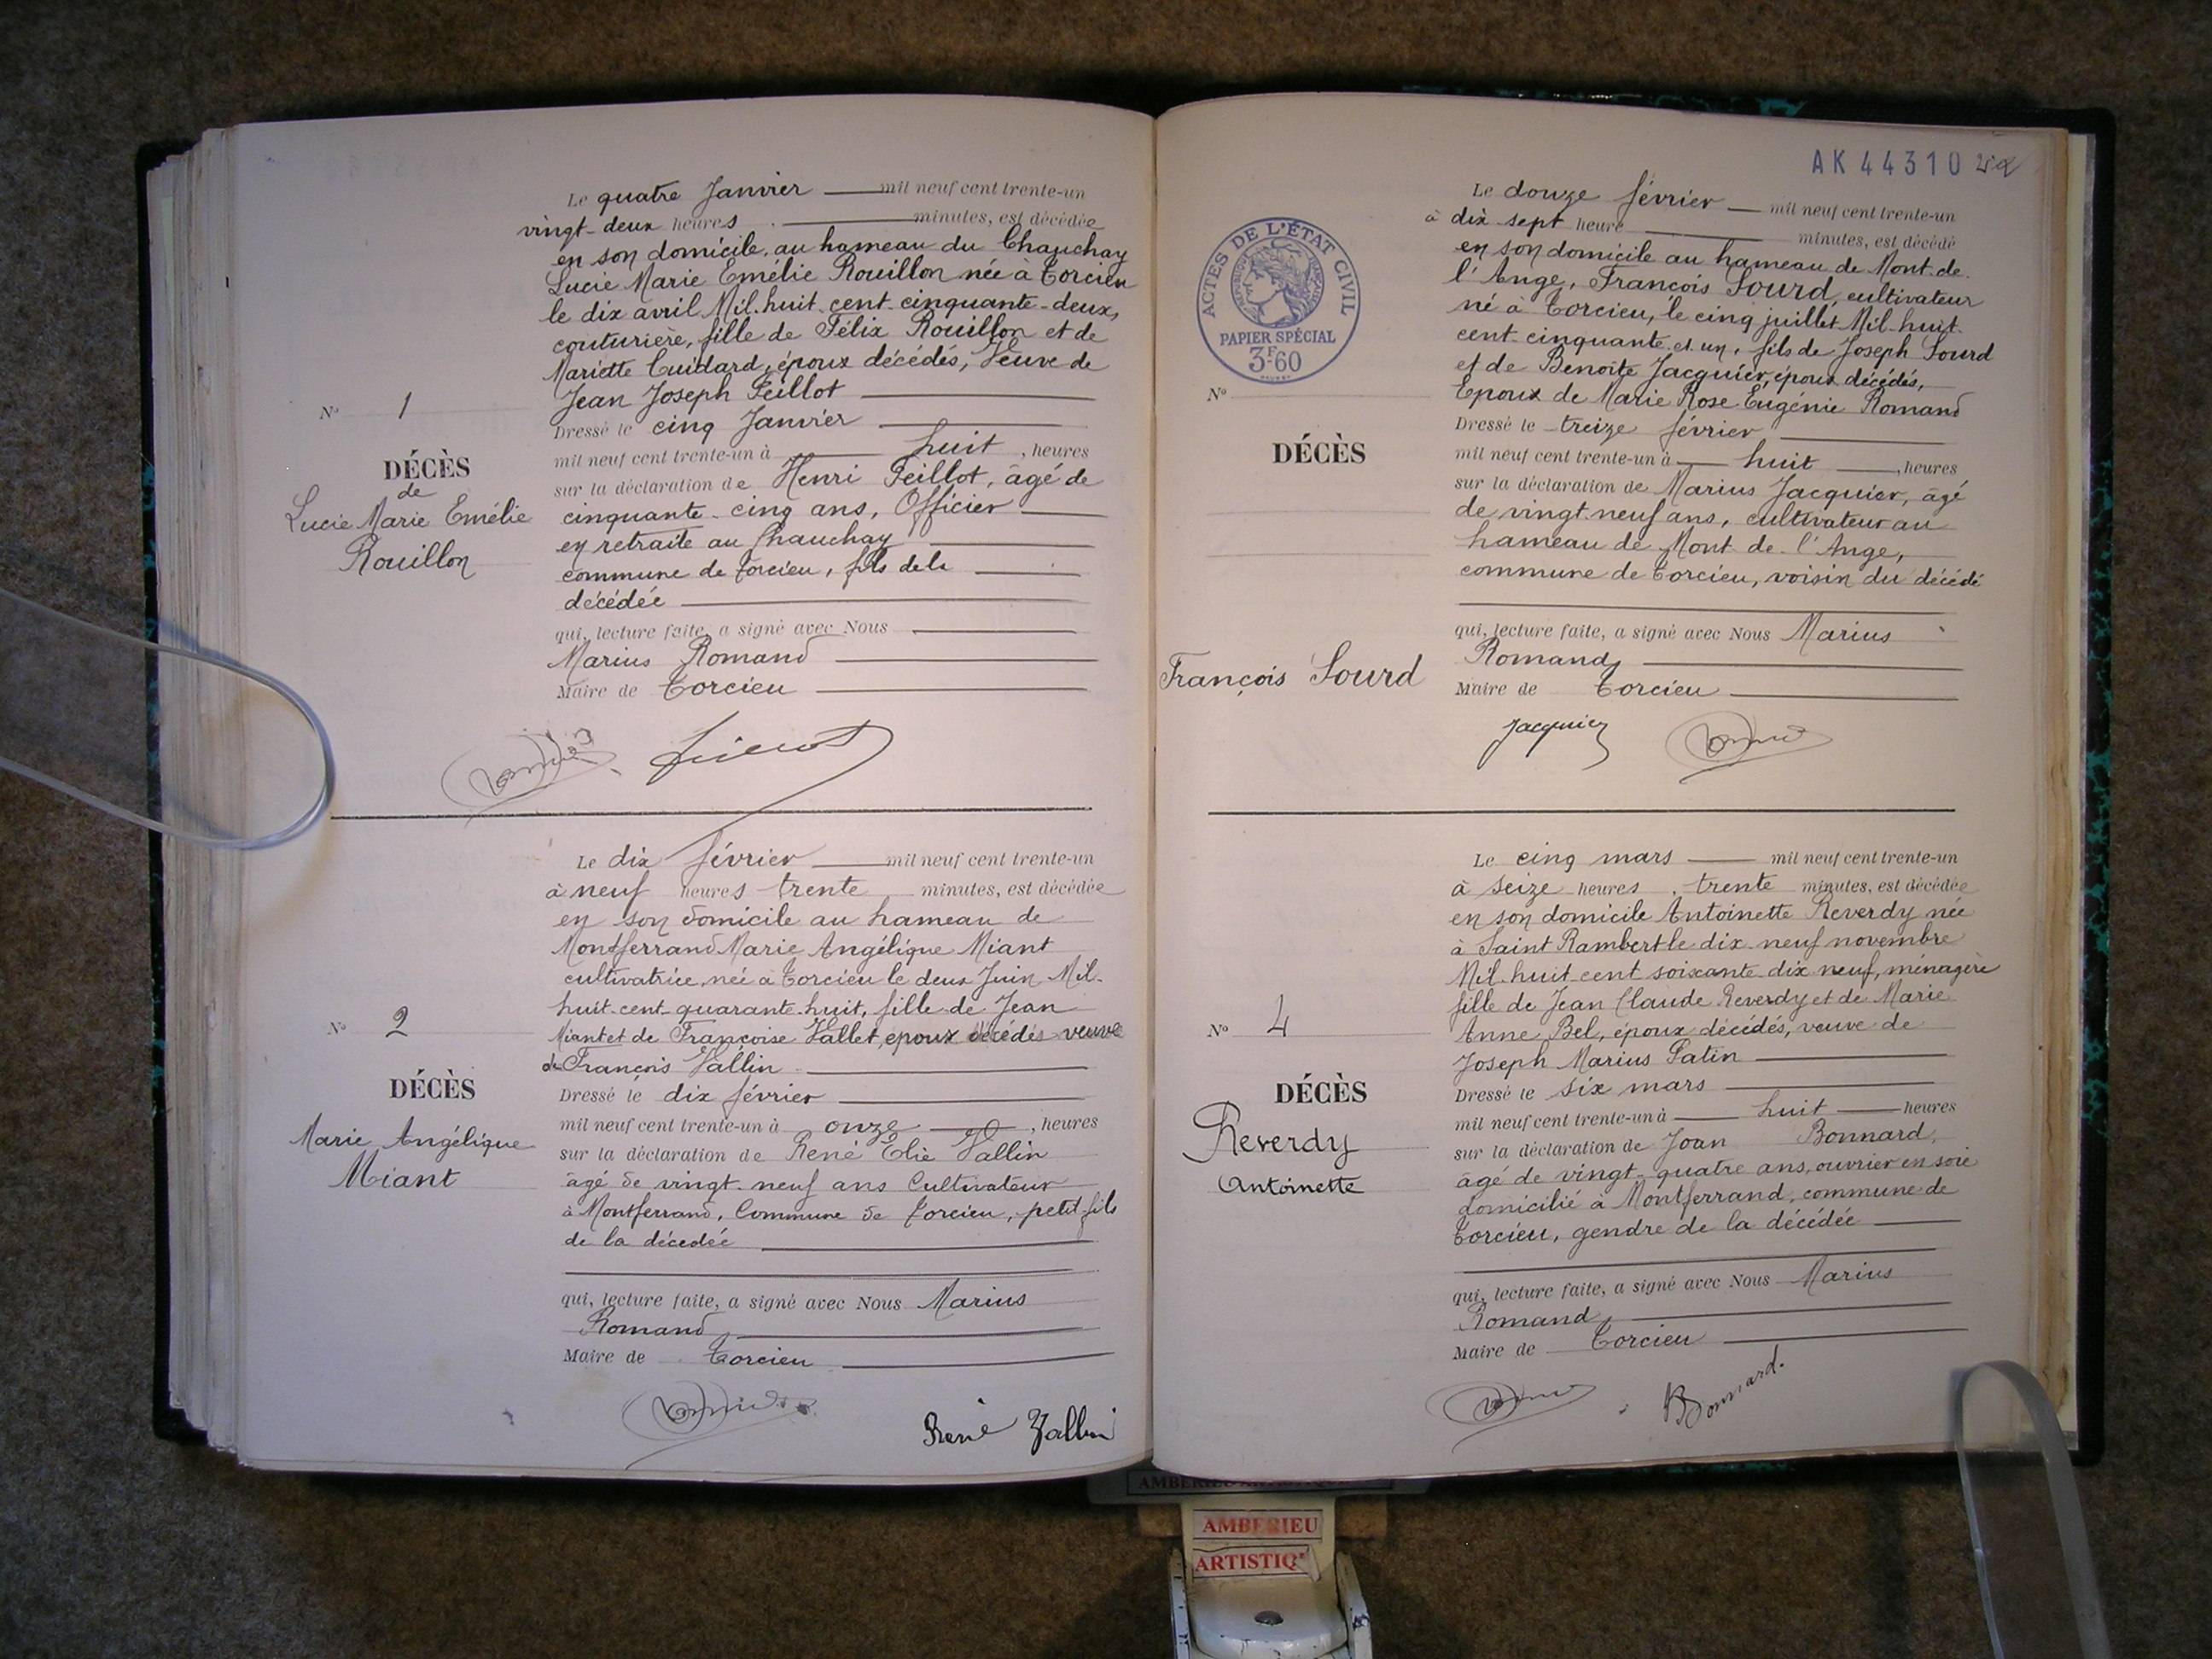 Le quatre Janvier mil neuf cent trente-un
vingt-deux heures minutes, est décédée
en son domicile, au hameau du Chauchay
Lucie Marie Emélie Rouillon née à Torcieu
le dix avril Mil-huit-cent-cinquante-deux,
couturière, fille de Félix Rouillon et de
Mariette Cuidard, époux décédés, Veuve de
Jean Joseph Peillot
Dressé le cinq Janvier
mil neuf cent trente-un à huit, heures
sur la déclaration de Henri Peillot, âgé de
cinquante-cinq ans, Officier
en retraite au Chauchay
commune de Torcieu, fils de la
décédée
qui, lecture faite, a signé avec Nous
Marius Romand
Maire de Torcieu
N° 1
DÉCÈS
de
Lucie Marie Emélie
Rouillon
Le dix février mil neuf cent trente-un
à neuf heures trente minutes, est décédée
en son domicile au hameau de
Montferrand Marie Angélique Miant
cultivatrice, née à Torcieu le deux Juin Mil-
huit-cent-quarante-huit, fille de Jean
Miant et de Françoise Vallet, époux décédés veuve
de François Vallin
Dressé le dix février
mil neuf cent trente-un à onze, heures
sur la déclaration de René Elie Vallin
âgé de vingt-neuf ans Cultivateur
à Montferrand, Commune de Torcieu, petit-fils
de la décedée
qui, lecture faite, a signé avec Nous Marius
Romand,
Maire de Torcieu
N° 2
DÉCÈS
Marie Angélique
Miant
René Vallin
AK 44310
ACTES DE L'ÉTAT CIVIL
PAPIER SPÉCIAL
3F60
Le douze février mil neuf cent trente-un
à dix-sept heure minutes, est décédé
en son domicile au hameau de Mont-de-
l'Ange, François Sourd, cultivateur
né à Torcieu, le cinq juillet Mil-huit-
cent-cinquante-et-un, fils de Joseph Sourd
et de Benoîte Jacquier, époux décédés,
Epoux de Marie Rose Eugénie Romand
Dressé le treize février
mil neuf cent trente-un à huit, heures
sur la déclaration de Marius Jacquier, âgé
de vingt-neuf ans, cultivateur au
hameau de Mont-de-l'Ange,
commune de Torcieu, voisin du décédé
qui, lecture faite, a signé avec Nous Marius
Romand,
Maire de Torcieu
N°
DÉCÈS
François Sourd
Jacquier
Le cinq mars mil neuf cent trente-un
à seize heures, trente minutes, est décédée
en son domicile Antoinette Reverdy née
à Saint Rambert le dix-neuf novembre
Mil-huit-cent soixante-dix-neuf, ménagère
fille de Jean Claude Reverdy et de Marie
Anne Bel, époux décédés, veuve de
Joseph Marius Patin
Dressé le six mars
mil neuf cent trente-un à huit heures
sur la déclaration de Joan Bonnard,
âgé de vingt-quatre ans, ouvrier en soie
domicilié à Montferrand, commune de
Torcieu, gendre de la décédée
qui, lecture faite, a signé avec Nous Marius
Romand,
Maire de Torcieu
N° 4
DÉCÈS
Reverdy
Antoinette
Bonnard.
AMBERIEU
ARTISTIQ